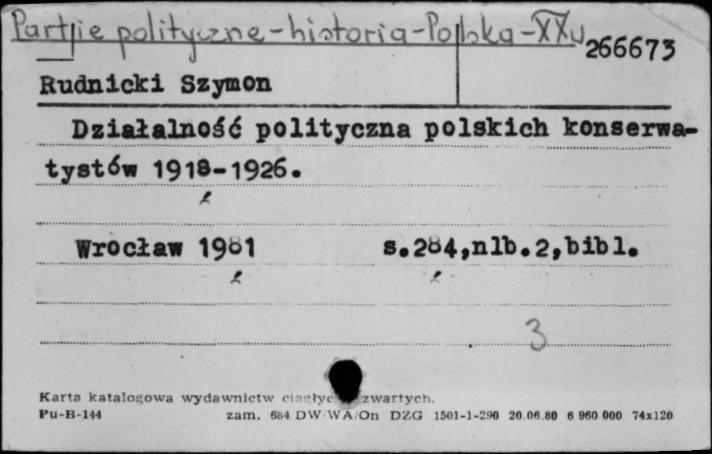 Partie polityczne-historia-Polska-XXw
266673
Rudnicki Szymon
Działalność polityczna polskich konserwa-
tystów 1918-1926.
Wrocław 1981 s.284,nlb.2,bibl.
3
Karta katalogowa wydawnictw ciągłyc zwartych.
Pu-B-144 zam. 684 DW WA/On DZG 1501-1-290 20.06.80 6 960 000 74x120